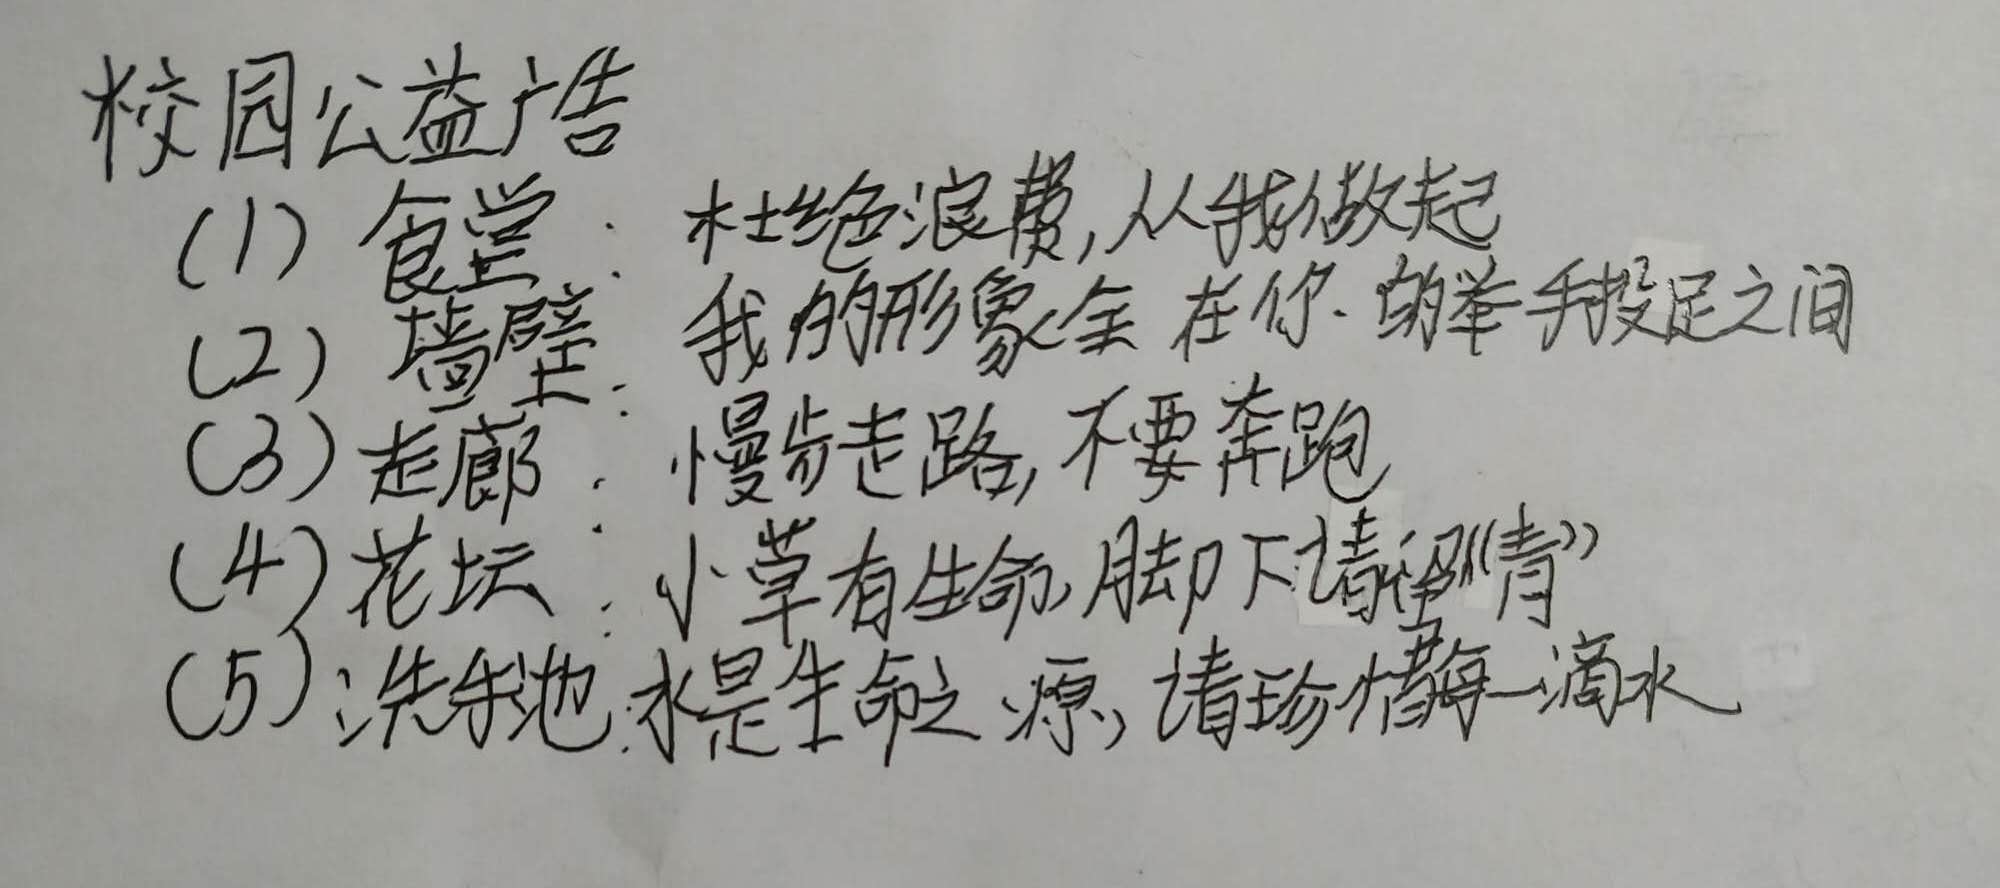 校园公益广告
(1) 食堂：杜绝浪费,从我做起
(2) 墙壁：我的形象全在你的举手投足之间
(3) 走廊：慢步走路,不要奔跑
(4) 花坛：小草有生命,脚下请留“青”
(5) 洗手池:水是生命之源,请珍惜每一滴水